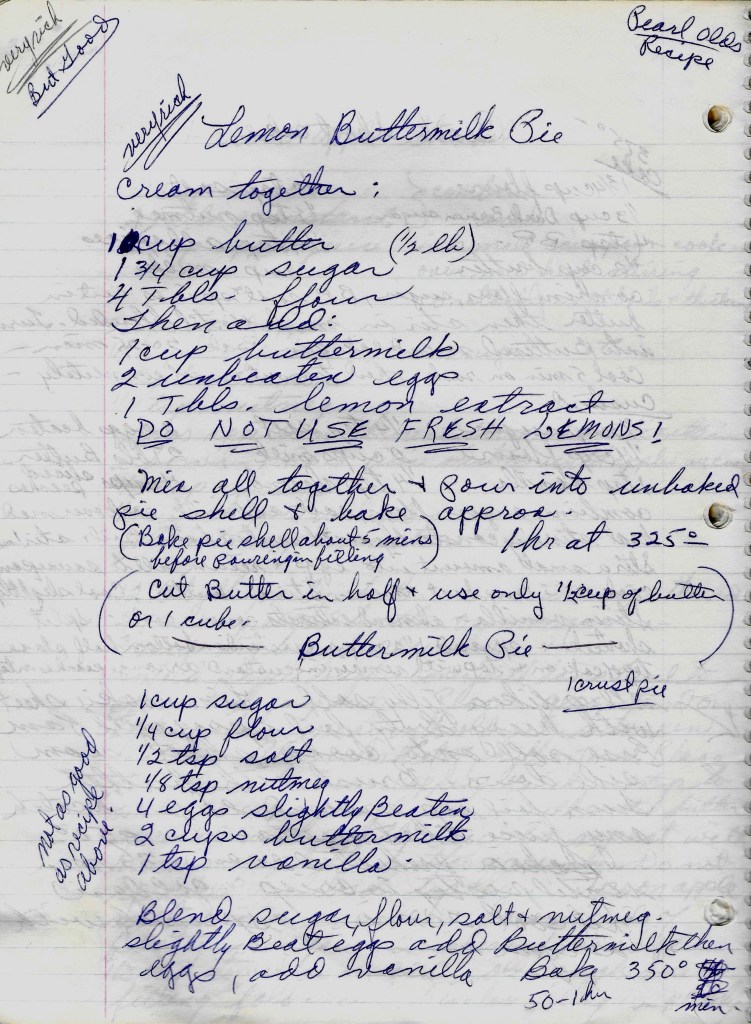 very rich
But Good
Pearl Olds
Recipe
very rich
Lemon Buttermilk Pie
Cream together:
1 cup butter (1/2 lb)
1 3/4 cup sugar
4 Tbls. flour
Then add:
1 cup buttermilk
2 unbeaten eggs
1 Tbls. lemon extract
DO NOT USE FRESH LEMONS!
Mix all together + pour into unbaked
pie shell + bake approx.
(Bake pie shell about 5 mins
before pouring in filling)
1 hr at 325°
(Cut Butter in half + use only 1/2 cup of butter
or 1 cube.)
Buttermilk Pie
1 crust pie
1 cup sugar
1/4 cup flour
1/2 tsp salt
1/8 tsp nutmeg
4 eggs slightly Beaten
2 cups buttermilk
1 tsp vanilla.
not as good
as recipe
above.
Blend sugar, flour, salt + nutmeg.
slightly Beat eggs add Buttermilk then
eggs, add vanilla Bake 350°
50-1 hr
min.